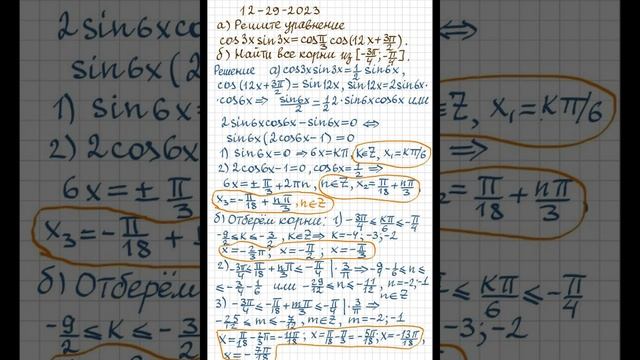 12-29-2023
а) Решите уравнение
cos3x sin3x = cos π/3 cos(12x + 3π/2).
б) Найти все корни из [-3π/4; -π/4].
Решение а) cos3x sin3x = 1/2 sin6x,
cos(12x + 3π/2) = sin12x, sin12x = 2sin6x·
·cos6x ⇒ sin6x/2 = 1/2 2·sin6x cos6x или
2sin6x cos6x - sin6x = 0 ⇔
sin6x(2cos6x - 1) = 0
1) sin6x = 0 ⇒ 6x = кπ, к∈Z, x₁ = кπ/6
2) 2cos6x - 1 = 0, cos6x = 1/2 ⇒
6x = ± π/3 + 2πn, n∈Z, x₂ = π/18 + nπ/3
x₃ = -π/18 + nπ/3, n∈Z
б) Отберём корни: 1) -3π/4 ≤ кπ/6 ≤ -π/4
-9/2 ≤ к ≤ -3/2, к∈Z ⇒ к = -4; -3; -2
x = -2/3 π; x = -π/2; x = -π/3
2) -3π/4 ≤ π/18 + nπ/3 ≤ -π/4 | · 3/π ⇒ -9/4 - 1/6 ≤ n ≤
≤ -3/4 - 1/6 или -29/12 ≤ n ≤ -11/12, n = -2; -1
n∈Z
3) -3π/4 ≤ -π/18 + mπ/3 ≤ -π/4 | · 3/π ⇒
-25/12 ≤ m ≤ -7/12, m∈Z, m = -2; -1
x = π/18 - 2π/3 = -11π/18; x = π/18 - π/3 = -5π/18, x = -13π/18,
x = -7π/18